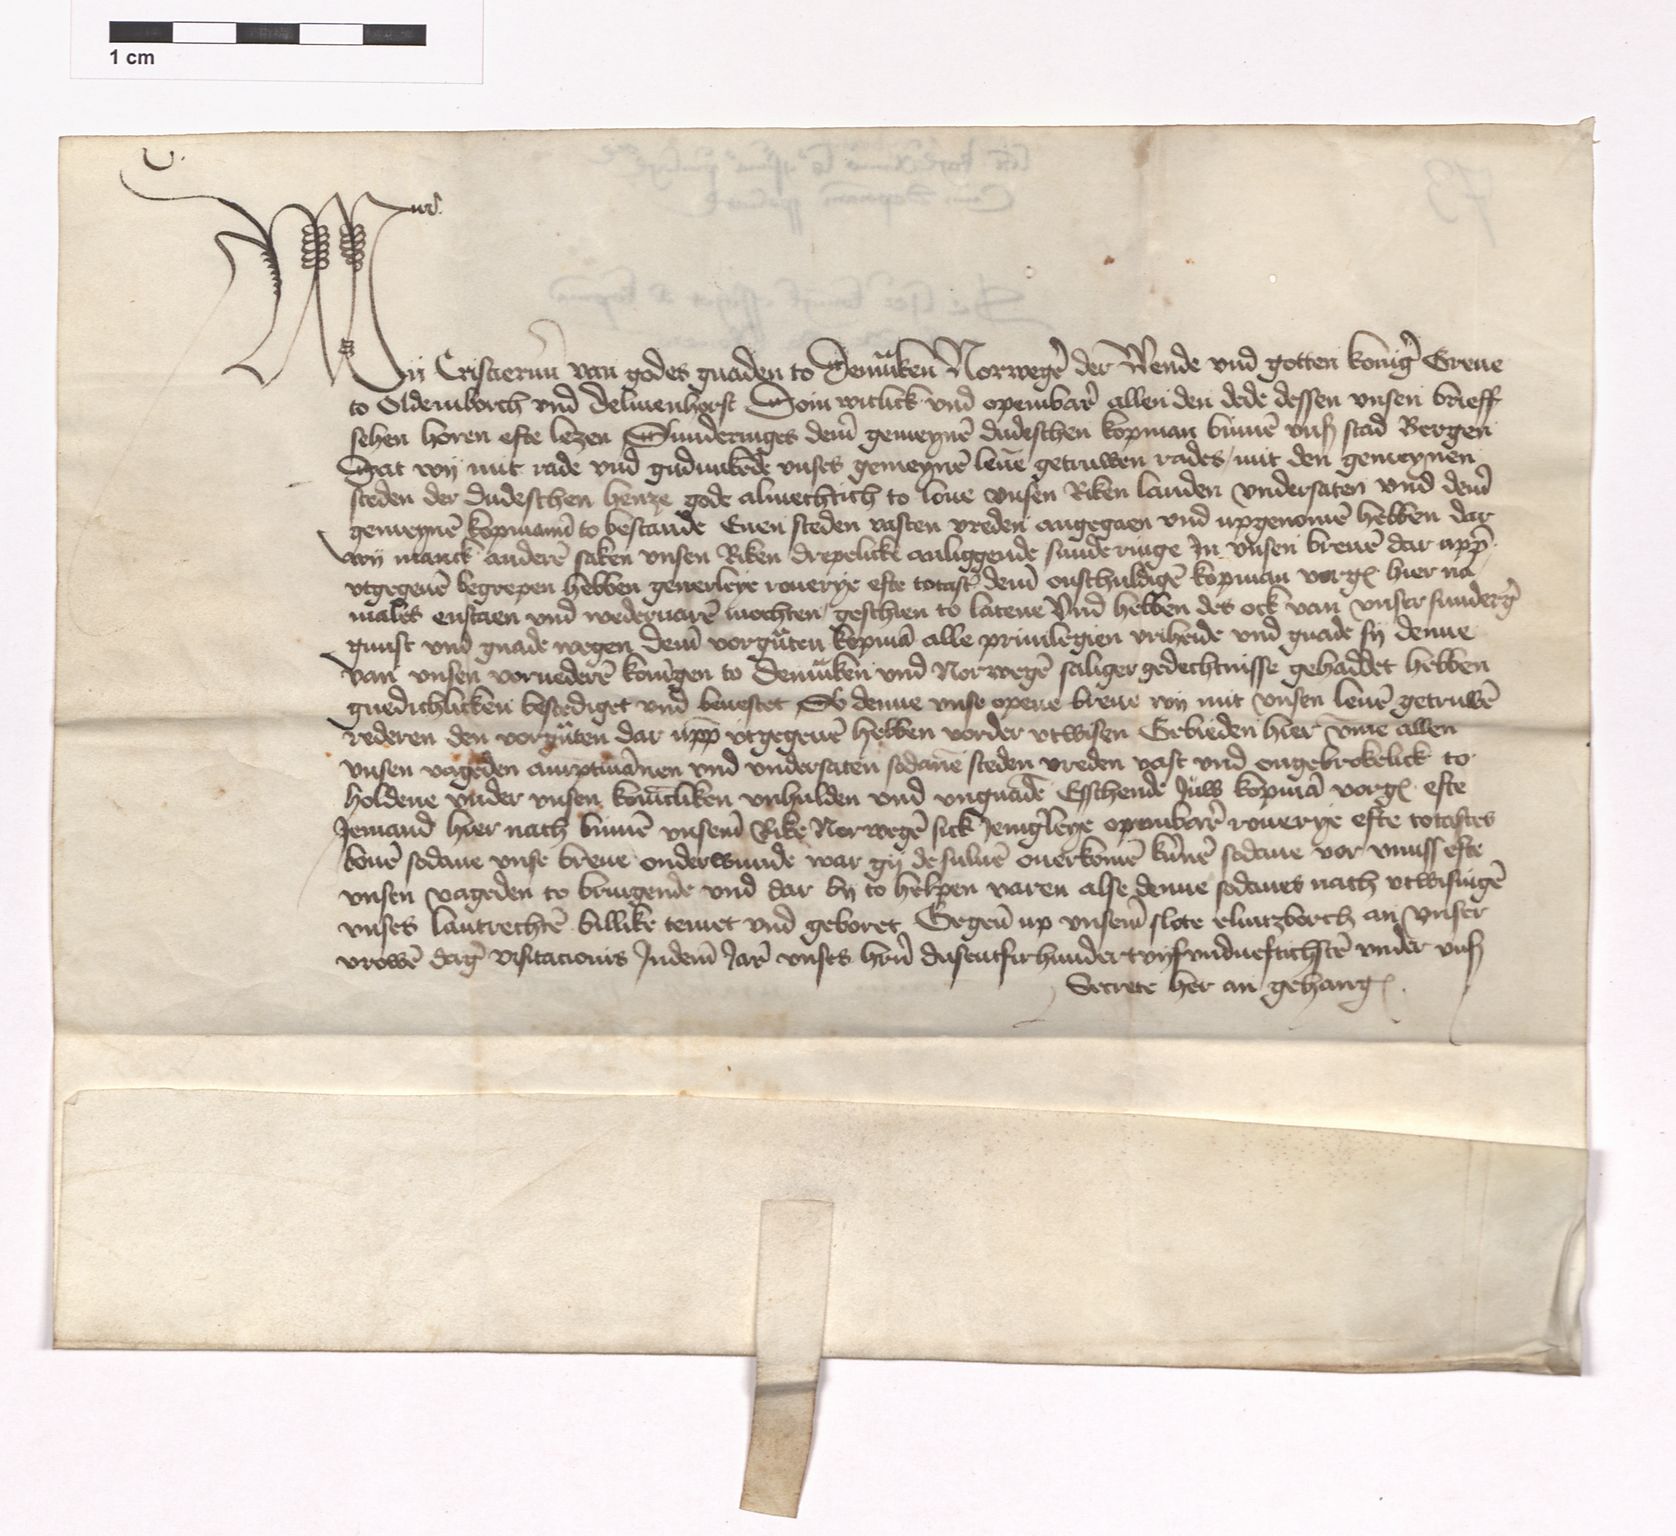 1 cm
Wij Cristiern van godes gnaden to Denmken Norwegē der Wende vnd gotten koni͡g Greue
to Oldemborch vnd delmenhorst Doin witlick vnd openbar allen den dede dessen vnsen brieff
sehen horen efte lezen Sunderinges dem gemeynē dudeschen kopman bīnnē vnß stad Bergen
Dat wij mit rade vnd gudunkēde vnses gemeynē leuē getruwen rades / mit den gemeynen
steden der dudeschen henze gode almechtich to loue vnsen Riken landen vndersaten vnd dem
gemeynē kopmann to bestande Enen steden vasten vreden angegaen vnd upgenomē hebben dar
wij manck anderē saken vnsen Riken drepelicke anliggende sunderinge In vnsen breuē dar upp
vtgegeuē begrepen hebben generleye rouerye efte totast dem onschuldigē kopman vorg hier na
males enstaen vnd wederuarē mochten geschien to latene Vnd hebben des ock van vnser sunderg
gunst vnd gnade wegen dem vorgūten kopmā alle priuilegien vriheide vnd gnade sij denne
van vnsen voruederē konīgen to Denmken vnd Norwegē saliger gedechtnisse gehaddet hebben
gnedichlicken bestediget vnd beuestet So denne vnse opene breue wij mit vnsen leuē getruwē
rederen den vorgūten dar upp vtgegeuē hebben vorder vtwisen Gebieden hier vme allen
vnsen vageden amptmānen vnd vndersaten sodanē steden vreden vast vnd ongebrokelick to
holdene vnder vnsen konīcliken vnhulden vnd vngnadē Esschende Juw kopmā vorg efte
Jemand hier nach bīnnē vnsem Rike Norwegē sick Jenigleye openbar rouerye efte totastes
bouē sodane vnse breue onderwunde war gij de suluē ouerkomē kūnē sodane vor vnnss efte
vnsen vageden to bringende vnd dar by to helpen varen alse denne sodanes nach vtwisingē
vnses lantrechtē billike temet vnd geboret Gegeū up vnsem slote elintzborch an vnser
vrowē dag visitacionis Indem Jar vnses hrn dusentfirhundertvijfvndueftichstē vnder vnß
Secrete her an gehang